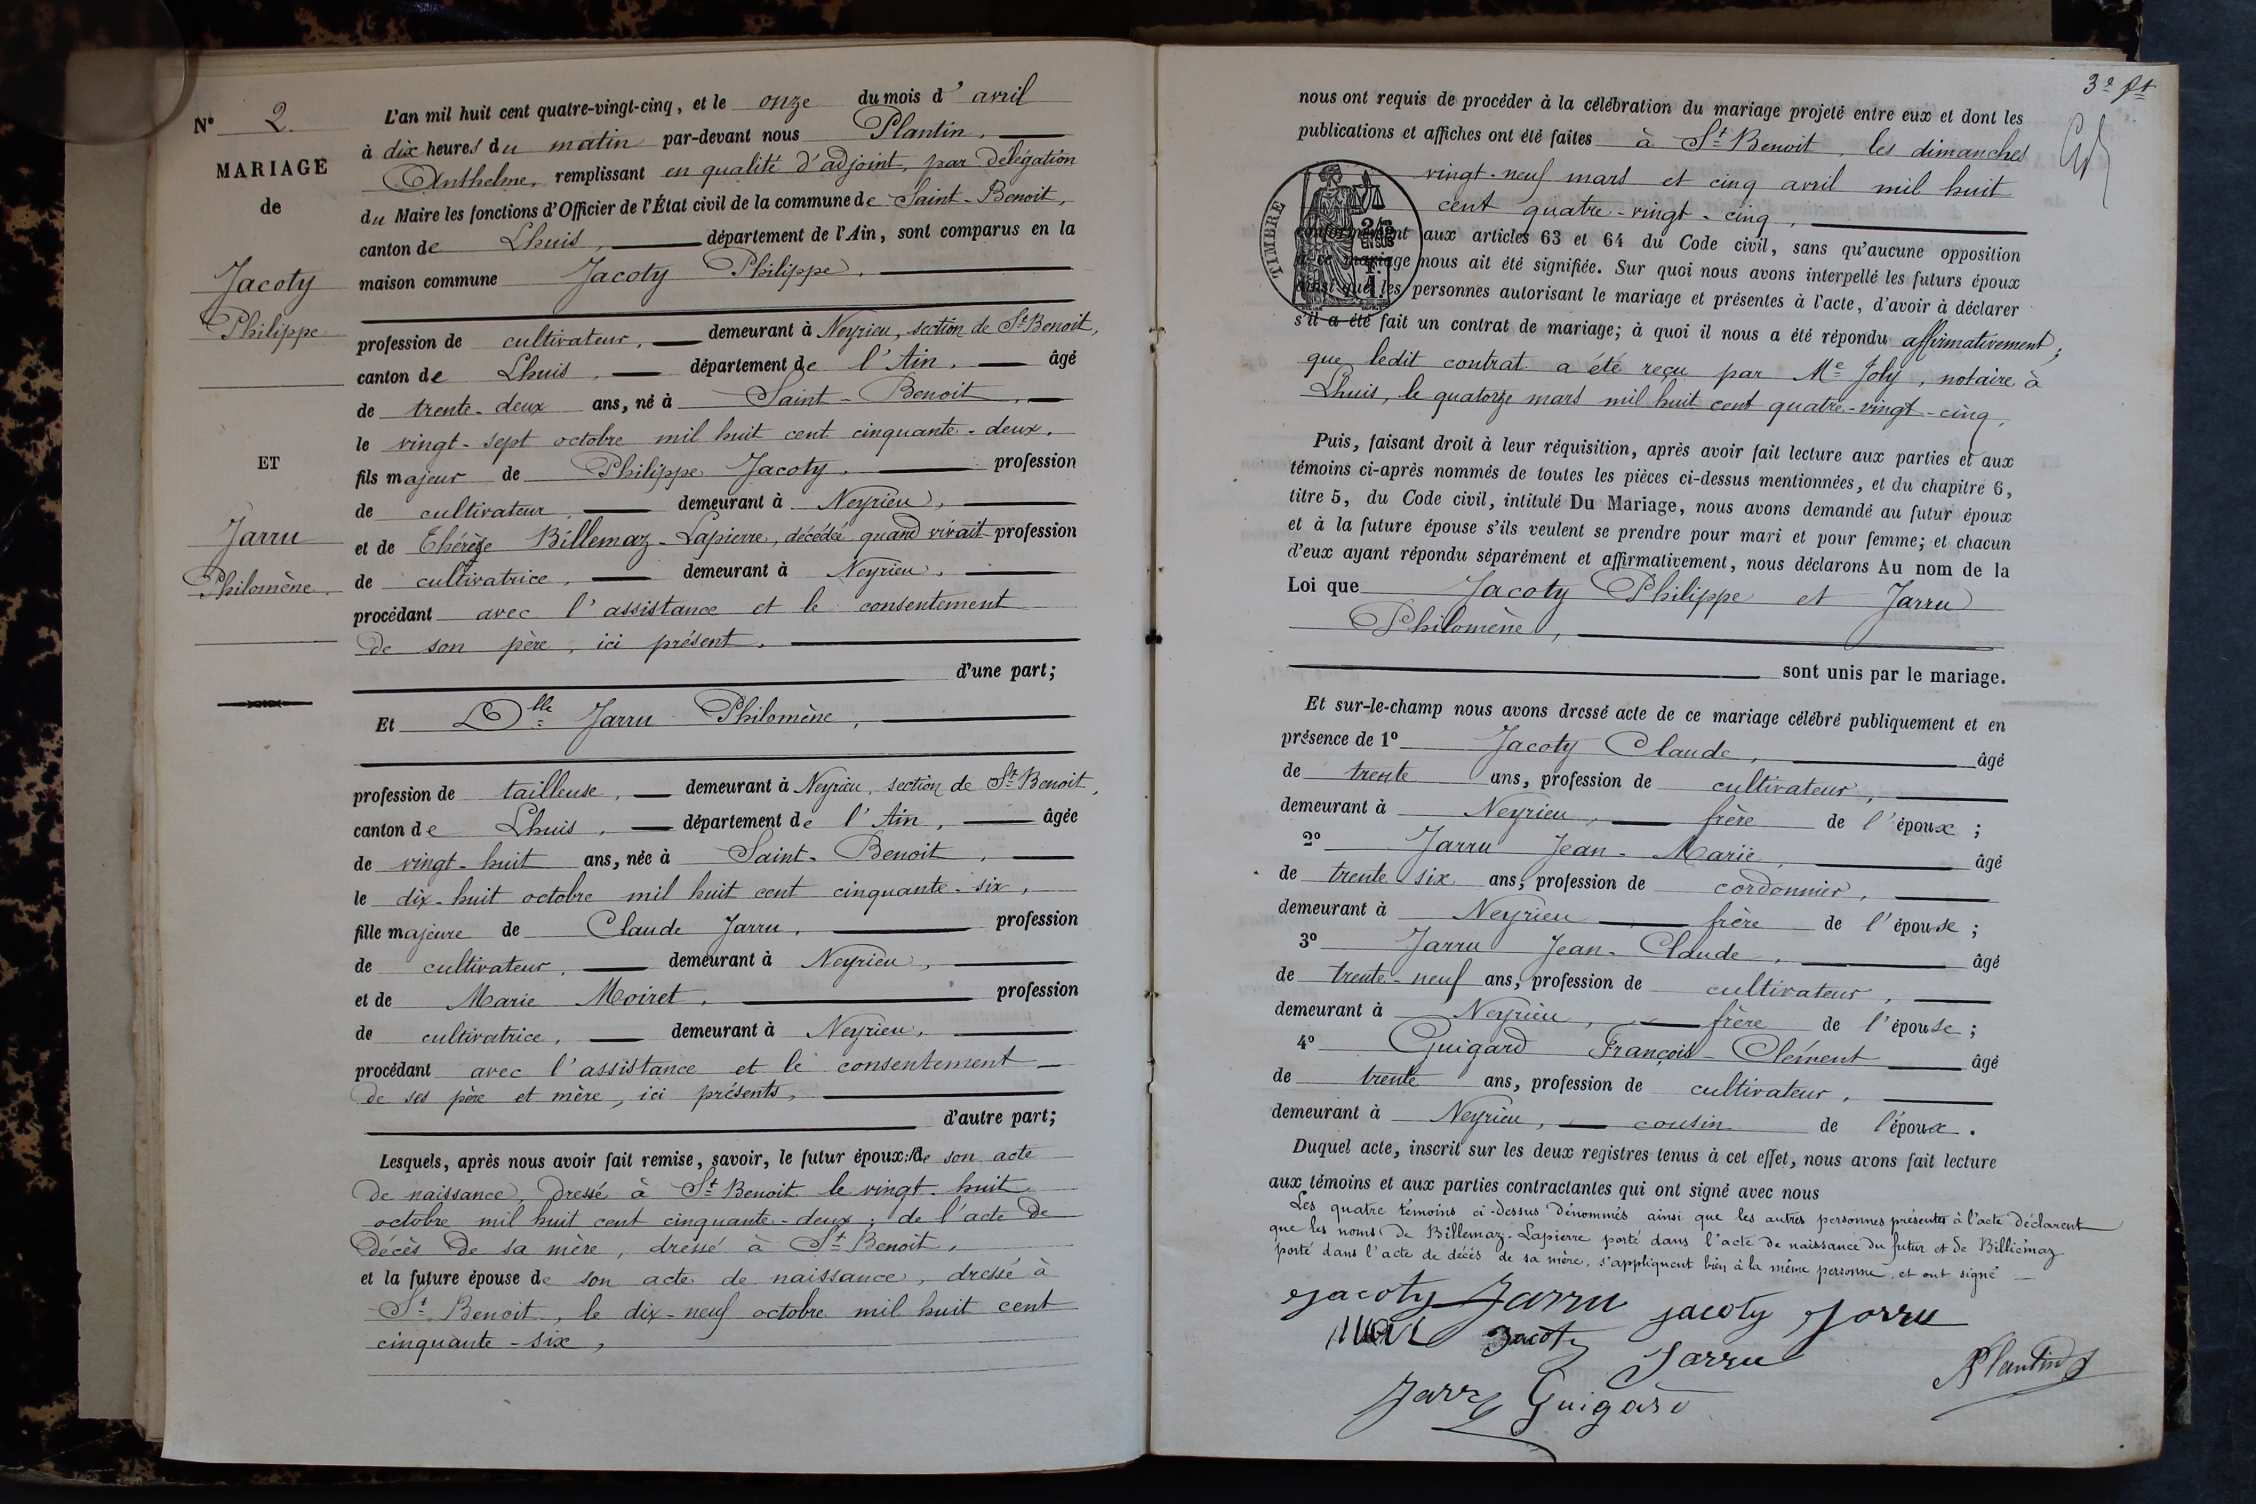 N° 2.
MARIAGE
de
Jacoty
Philippe
ET
Jarru
Philomène.
L'an mil huit cent quatre-vingt-cinq, et le onze du mois d'avril
à dix heures du matin par-devant nous Plantin,
Anthelme, remplissant en qualité d'adjoint, par délégation
du Maire les fonctions d'Officier de l'État civil de la commune de Saint-Benoit,
canton de Lhuis, département de l'Ain, sont comparus en la
maison commune Jacoty Philippe,
profession de cultivateur, demeurant à Neyrieu, section de St Benoit,
canton de Lhuis, département de l'Ain, âgé
de trente-deux ans, né à Saint-Benoit,
le vingt-sept octobre mil huit cent cinquante-deux,
fils majeur de Philippe Jacoty, profession
de cultivateur, demeurant à Neyrieu,
et de Thérèse Billemaz-Lapierre, décédée quand vivait profession
de cultivatrice, demeurant à Neyrieu,
procédant avec l'assistance et le consentement
de son père, ici présent,
d'une part;
Et Dlle Jarru Philomène,
profession de tailleuse, demeurant à Neyrieu, section de St Benoit,
canton de Lhuis, département de l'Ain, âgée
de vingt-huit ans, née à Saint-Benoit,
le dix-huit octobre mil huit cent cinquante-six,
fille majeure de Claude Jarru, profession
de cultivateur, demeurant à Neyrieu,
et de Marie Moiret, profession
de cultivatrice, demeurant à Neyrieu,
procédant avec l'assistance et le consentement
de ses père et mère, ici présents,
d'autre part;
Lesquels, après nous avoir fait remise, savoir, le futur époux: de son acte
de naissance, dressé à St Benoit le vingt-huit
octobre mil huit cent cinquante-deux; de l'acte de
décès de sa mère, dressé à St Benoit,
et la future épouse de son acte de naissance, dressé à
St Benoit, le dix-neuf octobre mil huit cent
cinquante-six,
nous ont requis de procéder à la célébration du mariage projeté entre eux et dont les
publications et affiches ont été faites à St Benoit, les dimanches
vingt-neuf mars et cinq avril mil huit
cent quatre-vingt-cinq,
TIMBRE
2/10 EN SUS
conformément aux articles 63 et 64 du Code civil, sans qu'aucune opposition
à ce mariage nous ait été signifiée. Sur quoi nous avons interpellé les futurs époux
ainsi que les personnes autorisant le mariage et présentes à l'acte, d'avoir à déclarer
s'il a été fait un contrat de mariage; à quoi il nous a été répondu affirmativement;
que ledit contrat a été reçu par Me Joly, notaire à
Lhuis, le quatorze mars mil huit cent quatre-vingt-cinq,
Puis, faisant droit à leur réquisition, après avoir fait lecture aux parties et aux
témoins ci-après nommés de toutes les pièces ci-dessus mentionnées, et du chapitre 6,
titre 5, du Code civil, intitulé Du Mariage, nous avons demandé au futur époux
et à la future épouse s'ils veulent se prendre pour mari et pour femme; et chacun
d'eux ayant répondu séparément et affirmativement, nous déclarons Au nom de la
Loi que Jacoty Philippe et Jarru
Philomène,
sont unis par le mariage.
Et sur-le-champ nous avons dressé acte de ce mariage célébré publiquement et en
présence de 1° Jacoty Claude, âgé
de trente ans, profession de cultivateur,
demeurant à Neyrieu, frère de l'époux;
2° Jarru Jean-Marie, âgé
de trente six ans, profession de cordonnier,
demeurant à Neyrieu frère de l'épouse;
3° Jarru Jean-Claude, âgé
de trente-neuf ans, profession de cultivateur,
demeurant à Neyrieu, frère de l'épouse;
4° Guigard François-Clément âgé
de trente ans, profession de cultivateur,
demeurant à Neyrieu, cousin de l'époux.
Duquel acte, inscrit sur les deux registres tenus à cet effet, nous avons fait lecture
aux témoins et aux parties contractantes qui ont signé avec nous
Les quatre témoins ci-dessus dénommés ainsi que les autres personnes présentes à l'acte déclarent
que les noms de Billemaz-Lapierre porté dans l'acte de naissance du futur et de Billiémaz
porté dans l'acte de décès de sa mère, s'appliquent bien à la même personne, et ont signé
Jacoty Jarru Jacoty Jarru
Jacoty
Jarru
Plantin
Jarru Guigard